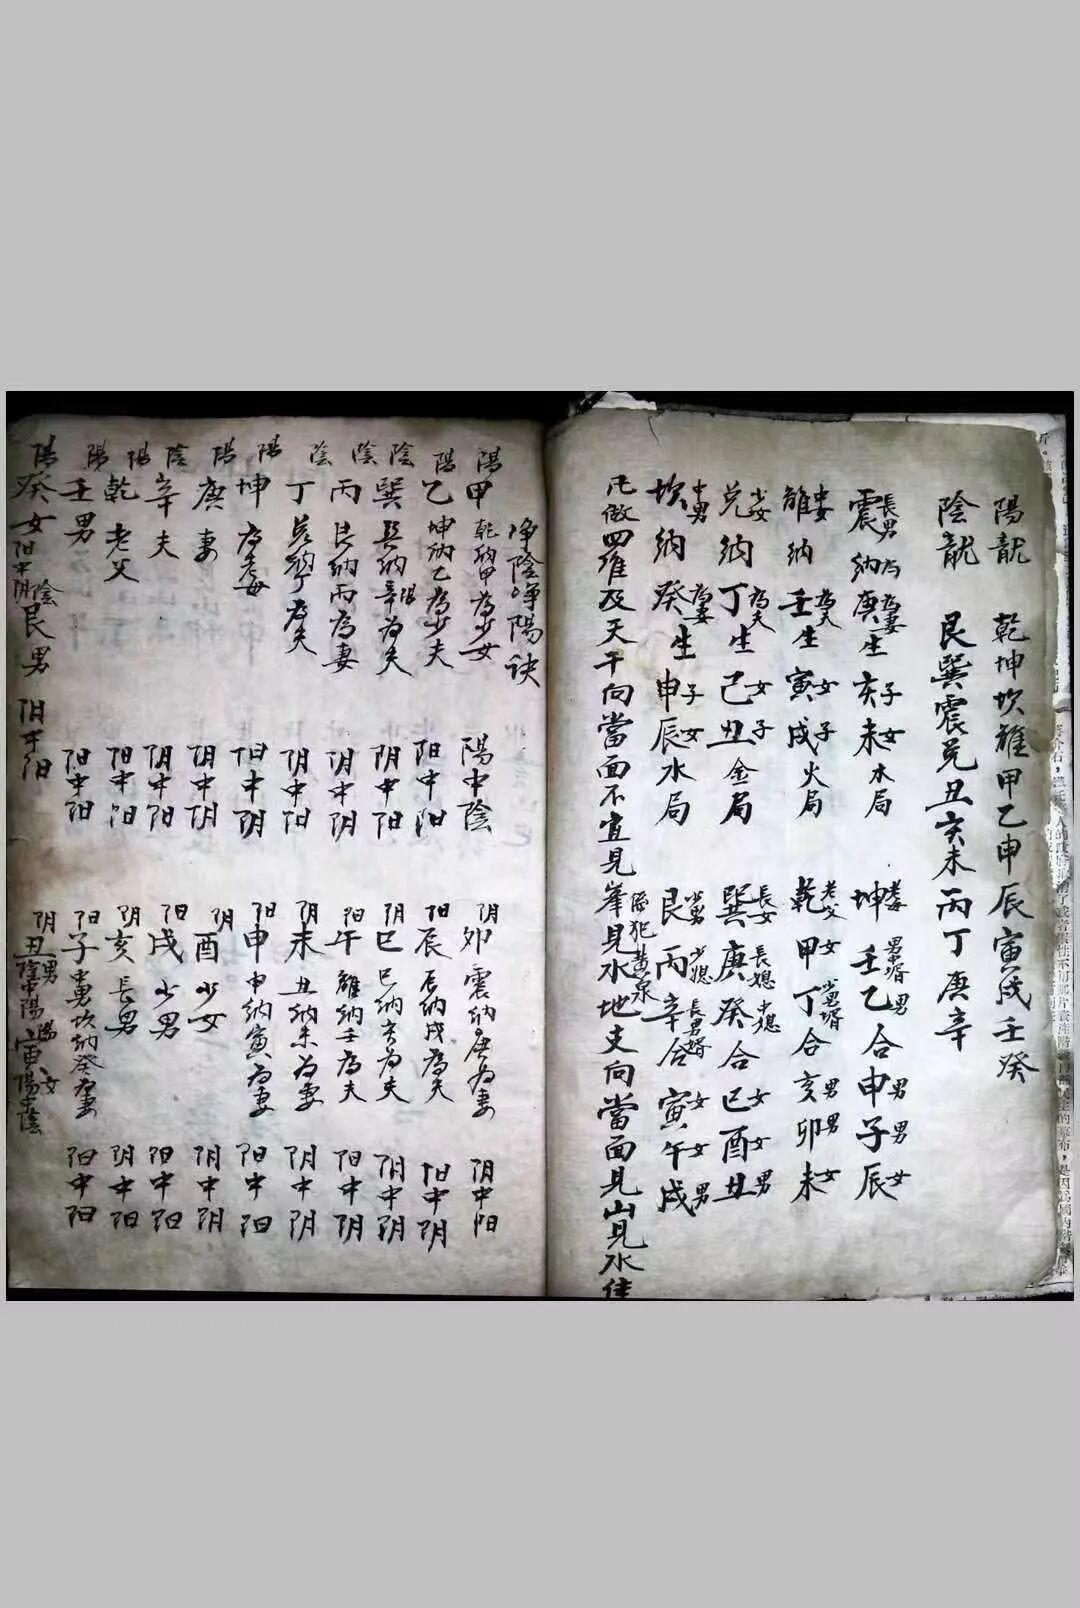 陽龍　乾坤坎離甲乙申辰寅戌壬癸
陰龍　艮巽震兑丑亥未丙丁庚辛
震長男納庚為妻生亥子未女木局　坤老母壬乙合申男子男辰女
離中女納壬為夫生寅女戌子火局　乾老父甲丁合亥男卯男未女
兑少女納丁為夫生己女丑子金局　巽長女庚癸合巳女酉女丑男
坎中男納癸為妻生申子辰女水局　艮少男丙辛合寅女午女戌男
四維及天干向當面不宜見峯見水地支向當面見山見水佳
犯黄泉
净陰净陽诀
陽甲乾納甲為少女　陽中陰　阴卯震納庚為妻　阴中阳
陽乙坤納乙為少夫　阳中阳　阳辰辰納戌為夫　阳中阴
陰巽巽納辛為夫　阴中阳　阴巳巳納亥為夫　阴中阴
陰丙艮納丙為妻　阴中阴　阳午離納壬為夫　阳中阴
陰丁兑納丁為夫　阴中阳　阴未丑納未為妻　阴中阴
陽坤為老母　阳中阴　阳申申納寅為妻　阳中阳
陽庚妻　阴中阴　阴酉少女　阴中阴
陰辛夫　阴中阳　阳戌少男　阳中阳
陽乾老父　阳中阳　阴亥長男　阴中阳
陽壬男　阳中阳　阳子中男坎納癸為妻　阳中阳
陽癸女阳中阴　陰艮男　阴中阳　阴丑男陰中陽　陽寅女陽中陰